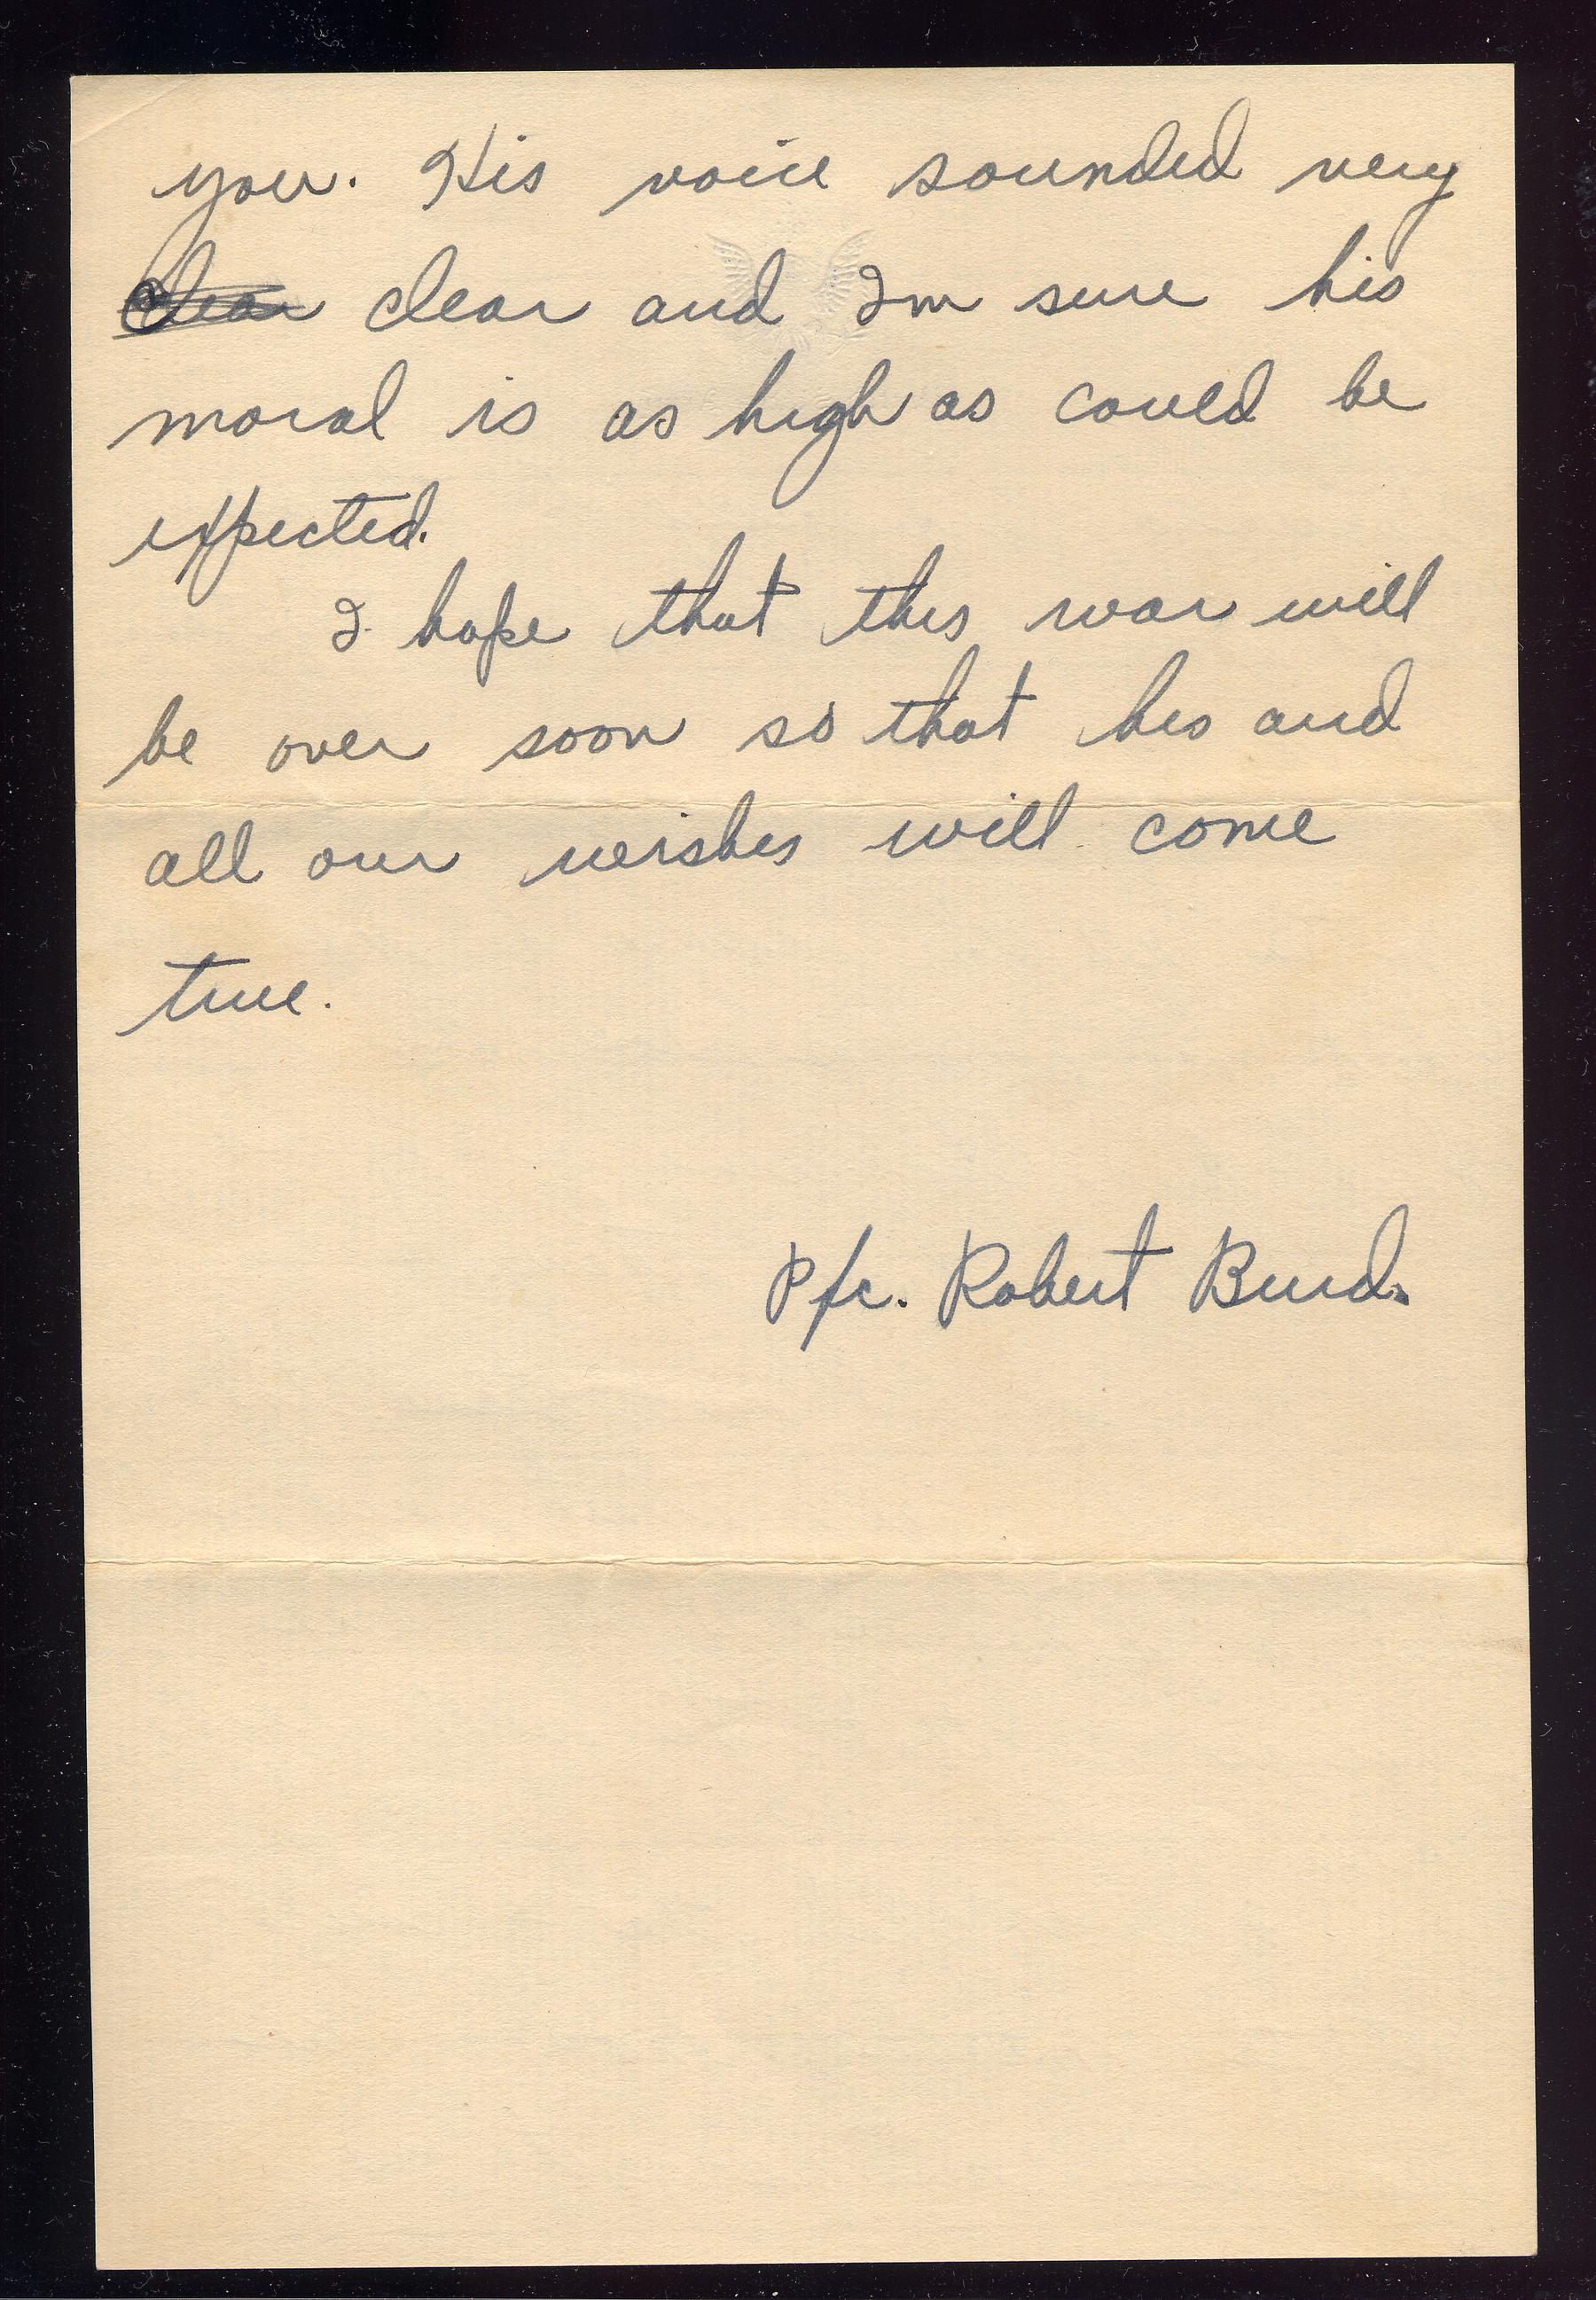 you. His voice sounded very
clear clear and Im sure his
moral is as high as could be
expected.
I hope that this war will
be over soon so that his and
all our wishes will come
true.
Pfc. Robert Burd.